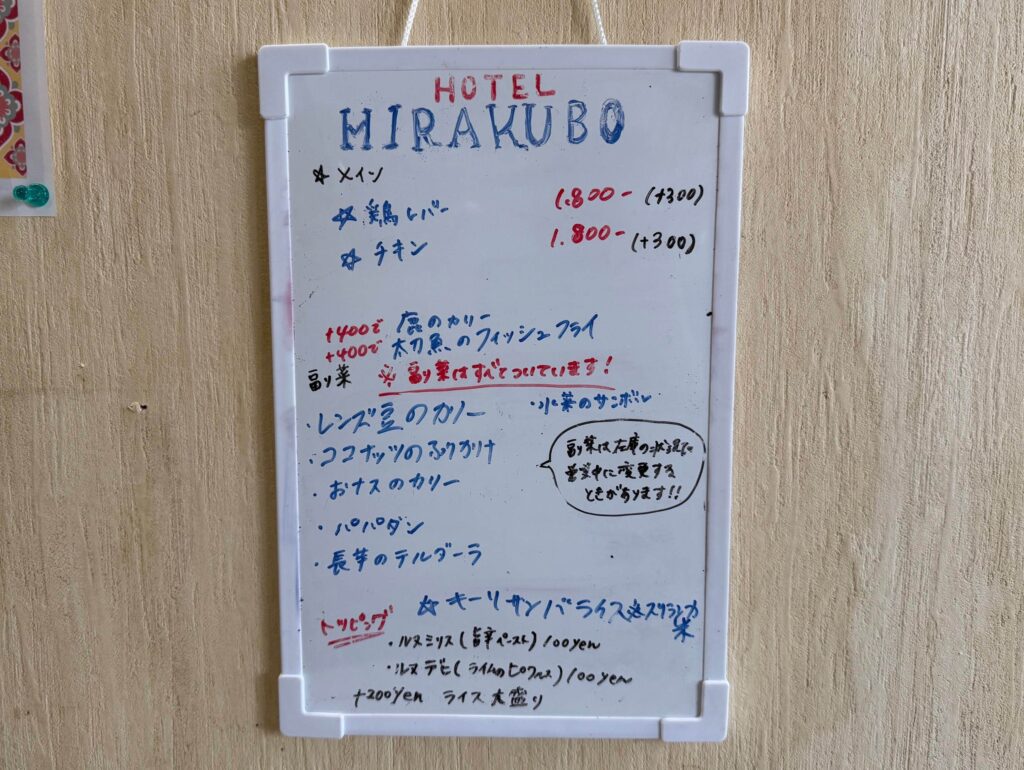 HOTEL
HIRAKUBO
☆ メイン
☆ 鶏レバー 1.800- (+300)
☆ チキン 1.800- (+300)
+400で 鹿のカリー
+400で 太刀魚のフィッシュフライ
副菜 ※ 副菜はすべてついています!
・レンズ豆のカリー ・水菜のサンボル
・ココナッツのふりかけ
・おナスのカリー
・パパダン
・長芋のテルダーラ
副菜は在庫の状況で
営業中に変更する
ときがあります!!
☆ キーリサンバライス ☆スリランカ
米
トッピング
・ルヌミリス(旨辛ペースト)100yen
・ルヌデヒ(ライムのピクルス)100yen
+200yen ライス大盛り